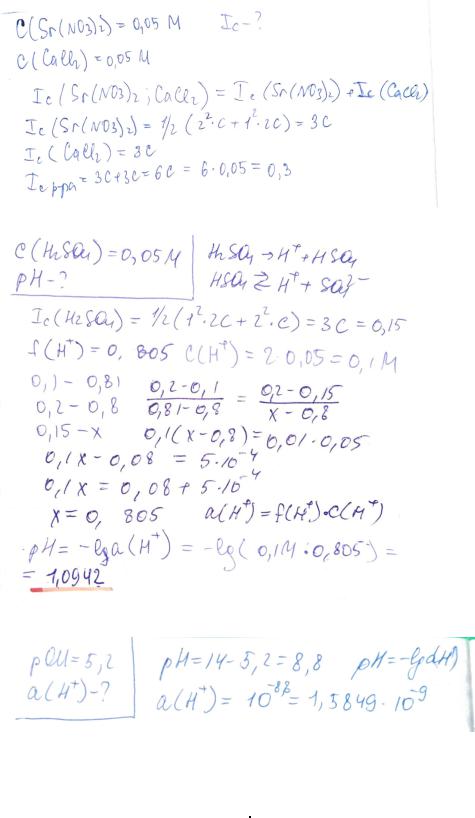 C(Sr(NO3)2) = 0,05 M Ic - ?
C(CaCl2) = 0,05 M
Ic(Sr(NO3)2; CaCl2) = Ic(Sr(NO3)2) + Ic(CaCl2)
Ic(Sr(NO3)2) = 1/2 (2²·C + 1²·2C) = 3C
Ic(CaCl2) = 3C
Ic р-ра = 3C + 3C = 6C = 6·0,05 = 0,3
C(H2SO4) = 0,05 M H2SO4 → H⁺ + HSO4
pH - ? HSO4 ⇄ H⁺ + SO4²⁻
Ic(H2SO4) = 1/2 (1²·2C + 2²·C) = 3C = 0,15
f(H⁺) = 0,805 C(H⁺) = 2·0,05 = 0,1 M
0,1 - 0,81 (0,2-0,1)/(0,81-0,8) = (0,2-0,15)/(x-0,8)
0,2 - 0,8
0,15 - x 0,1(x-0,8) = 0,01·0,05
0,1x - 0,08 = 5·10⁻⁴
0,1x = 0,08 + 5·10⁻⁴
x = 0,805 a(H⁺) = f(H⁺)·C(H⁺)
pH = -lg a(H⁺) = -lg(0,1M·0,805) =
= 1,0942
pOH = 5,2 pH = 14 - 5,2 = 8,8 pH = -lg a(H⁺)
a(H⁺) - ? a(H⁺) = 10⁻⁸·⁸ = 1,5849·10⁻⁹